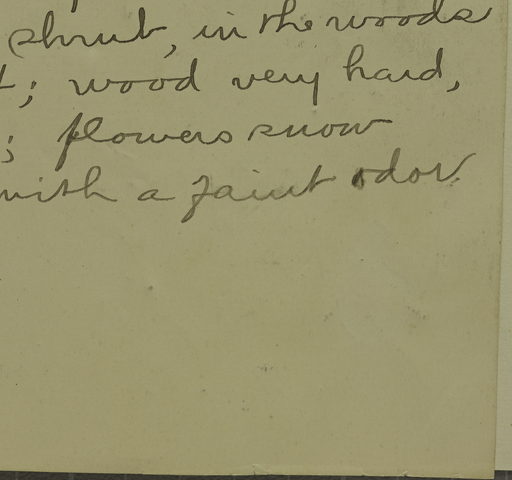 shrub, in the woods
t; wood very hard,
; flowers snow
with a faint odor